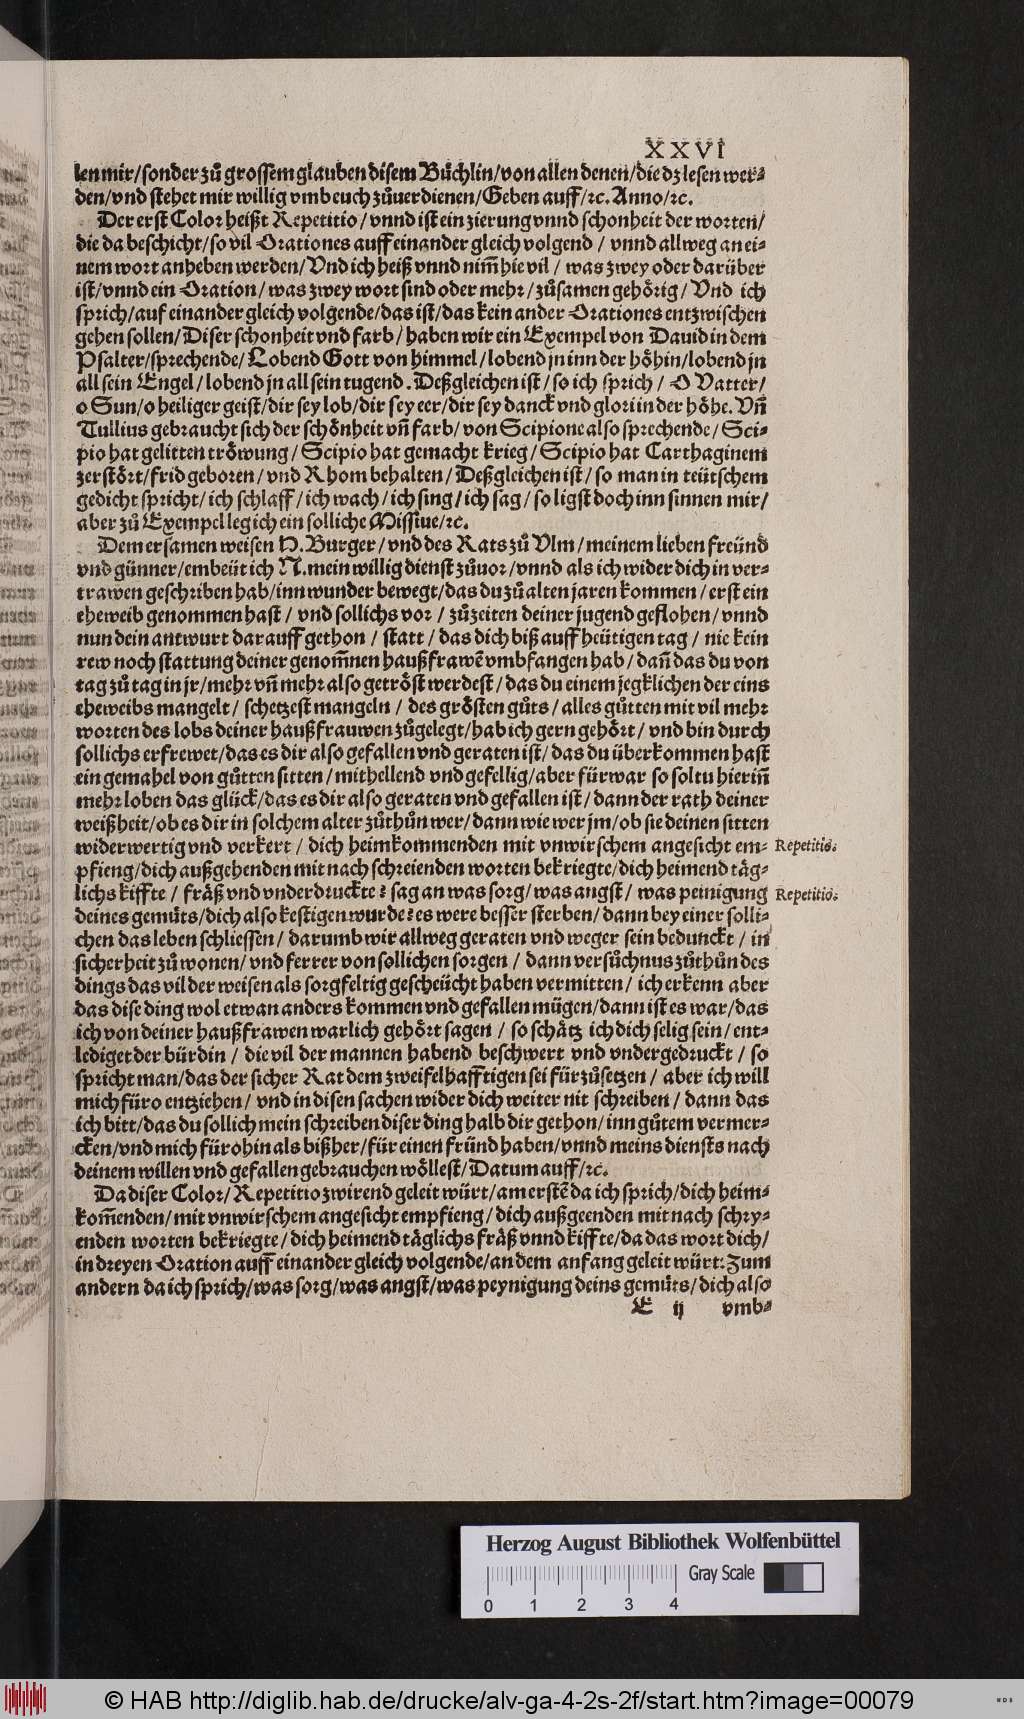 XXVI
len mir/sonder zů grossem glauben disem Bůchlin/von allen denen/die dz lesen wer⸗
den/vnd stehet mir willig vmb euch zůuerdienen/Geben auff/ꝛc. Anno/ꝛc.
Der erst Color heißt Repetitio/vnnd ist ein zierung vnnd schonheit der worten/
die da beschicht/so vil Orationes auff einander gleich volgend / vnnd allweg an ei⸗
nem wort anheben werden/Vnd ich heiß vnnd nim̄ hie vil / was zwey oder darüber
ist/vnnd ein Oration/was zwey wort sind oder mehr/zůsamen gehörig/Vnd ich
sprich/auf einander gleich volgende/das ist/das kein ander Orationes entzwischen
gehen sollen/Diser schonheit vnd farb/haben wir ein Exempel von Dauid in dem
Psalter/sprechende/Lobend Gott von himmel/lobend jn inn der höhin/lobend jn
all sein Engel/lobend jn all sein tugend. Deßgleichen ist/so ich sprich / O Vatter/
o Sun/o heiliger geist/dir sey lob/dir sey eer/dir sey danck vnd glori in der höhe. Vn̄
Tullius gebraucht sich der schönheit vn̄ farb/von Scipione also sprechende/Sci⸗
pio hat gelitten tröwung/Scipio hat gemacht krieg/Scipio hat Carthaginem
zerstört/frid geboren/vnd Rhom behalten/Deßgleichen ist/so man in teütschem
gedicht spricht/ich schlaff/ich wach/ich sing/ich sag/so ligst doch inn sinnen mir/
aber zů Exempel leg ich ein solliche Missiue/ꝛc.
Dem ersamen weisen H. Burger/vnd des Rats zů Vlm/meinem lieben freünd
vnd günner/embeüt ich N. mein willig dienst zůuor/vnnd als ich wider dich in ver⸗
trawen geschriben hab/inn wunder bewegt/das du zů alten jaren kommen/erst ein
eheweib genommen hast / vnd sollichs vor / zůzeiten deiner jugend geflohen/vnnd
nun dein antwurt darauff gethon / statt / das dich biß auff heütigen tag / nie kein
rew noch stattung deiner genom̄nen haußfrawē vmbfangen hab/dan̄ das du von
tag zů tag in jr/mehr vn̄ mehr also getröst werdest/das du einem jegklichen der eins
eheweibs mangelt/ schetzest mangeln / des grösten gůts/alles gůtten mit vil mehr
worten des lobs deiner haußfrauwen zůgelegt/hab ich gern gehört/vnd bin durch
sollichs erfrewet/das es dir also gefallen vnd geraten ist/das du überkommen hast
ein gemahel von gůtten sitten/mithellend vnd gefellig/aber fürwar so soltu hierin̄
mehr loben das glück/das es dir also geraten vnd gefallen ist/dann der rath deiner
weißheit/ob es dir in solchem alter zůthůn wer/dann wie wer jm/ob sie deinen sitten
widerwertig vnd verkert/ dich heimkommenden mit vnwirschem angesicht em⸗
Repetitio.
pfieng/dich außgehenden mit nach schreienden worten bekriegte/dich heimend täg⸗
lichs kiffte / fräß vnd vnderdruckte? sag an was sorg/was angst/ was peinigung
Repetitio.
deines gemůts/dich also kestigen wurde? es were besser sterben/dann bey einer solli⸗
chen das leben schliessen/ darumb wir allweg geraten vnd weger sein bedunckt / in
sicherheit zů wonen/vnd ferrer von sollichen sorgen / dann versůchnus zůthůn des
dings das vil der weisen als sorgfeltig gescheücht haben vermitten/ich erkenn aber
das dise ding wol etwan anders kommen vnd gefallen mügen/dann ist es war/das
ich von deiner haußfrawen warlich gehört sagen / so schätz ich dich selig sein/ent⸗
lediget der bürdin / die vil der mannen habend beschwert vnd vndergedruckt / so
spricht man/das der sicher Rat dem zweifelhafftigen sei fürzůsetzen / aber ich will
mich füro entziehen/ vnd in disen sachen wider dich weiter nit schreiben / dann das
ich bitt/das du sollich mein schreiben diser ding halb dir gethon/inn gůtem vermer⸗
cken/vnd mich fürohin als bißher/für einen fründ haben/vnnd meins diensts nach
deinem willen vnd gefallen gebrauchen wöllest/Datum auff/ꝛc.
Da diser Color/Repetitio zwirend geleit würt/am erstē da ich sprich/dich heim⸗
kom̄enden/mit vnwirschem angesicht empfieng/dich außgeenden mit nach schry⸗
enden worten bekriegte/dich heimend täglichs fräß vnnd kiffte/da das wort dich/
in dreyen Oration auff einander gleich volgende/an dem anfang geleit würt: Zum
andern da ich sprich/was sorg/was angst/was peynigung deins gemůts/dich also
E ij vmb⸗
Herzog August Bibliothek Wolfenbüttel
Gray Scale
0 1 2 3 4
© HAB http://diglib.hab.de/drucke/alv-ga-4-2s-2f/start.htm?image=00079